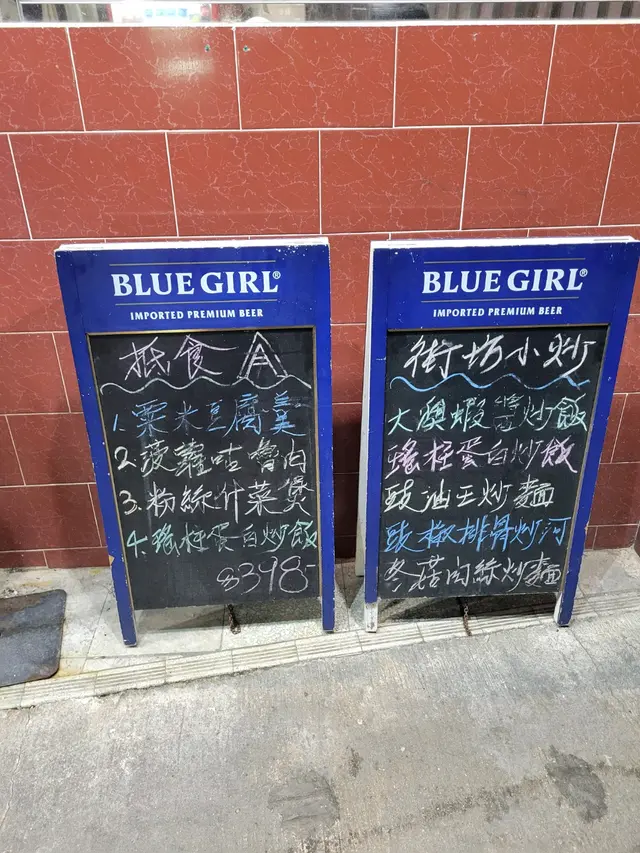 BLUE GIRL®
IMPORTED PREMIUM BEER
抵食
1. 粟米豆腐羹
2. 菠蘿咕嚕肉
3. 粉絲什菜煲
4. 瑤柱蛋白炒飯
$398-
BLUE GIRL®
IMPORTED PREMIUM BEER
街坊小炒
大澳蝦醬炒飯
瑤柱蛋白炒飯
豉油王炒麵
豉椒排骨炒河
冬菇肉絲炒麵